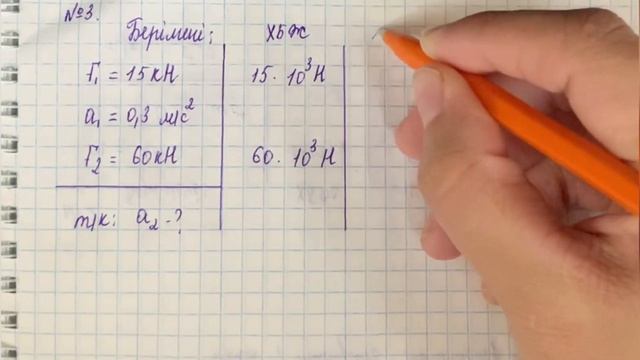 №3.
Берілгені: ХБЖ
F₁ = 15кН 15 · 10³ Н
a₁ = 0,3 м/с²
F₂ = 60кН 60 · 10³ Н
т/к: a₂ - ?